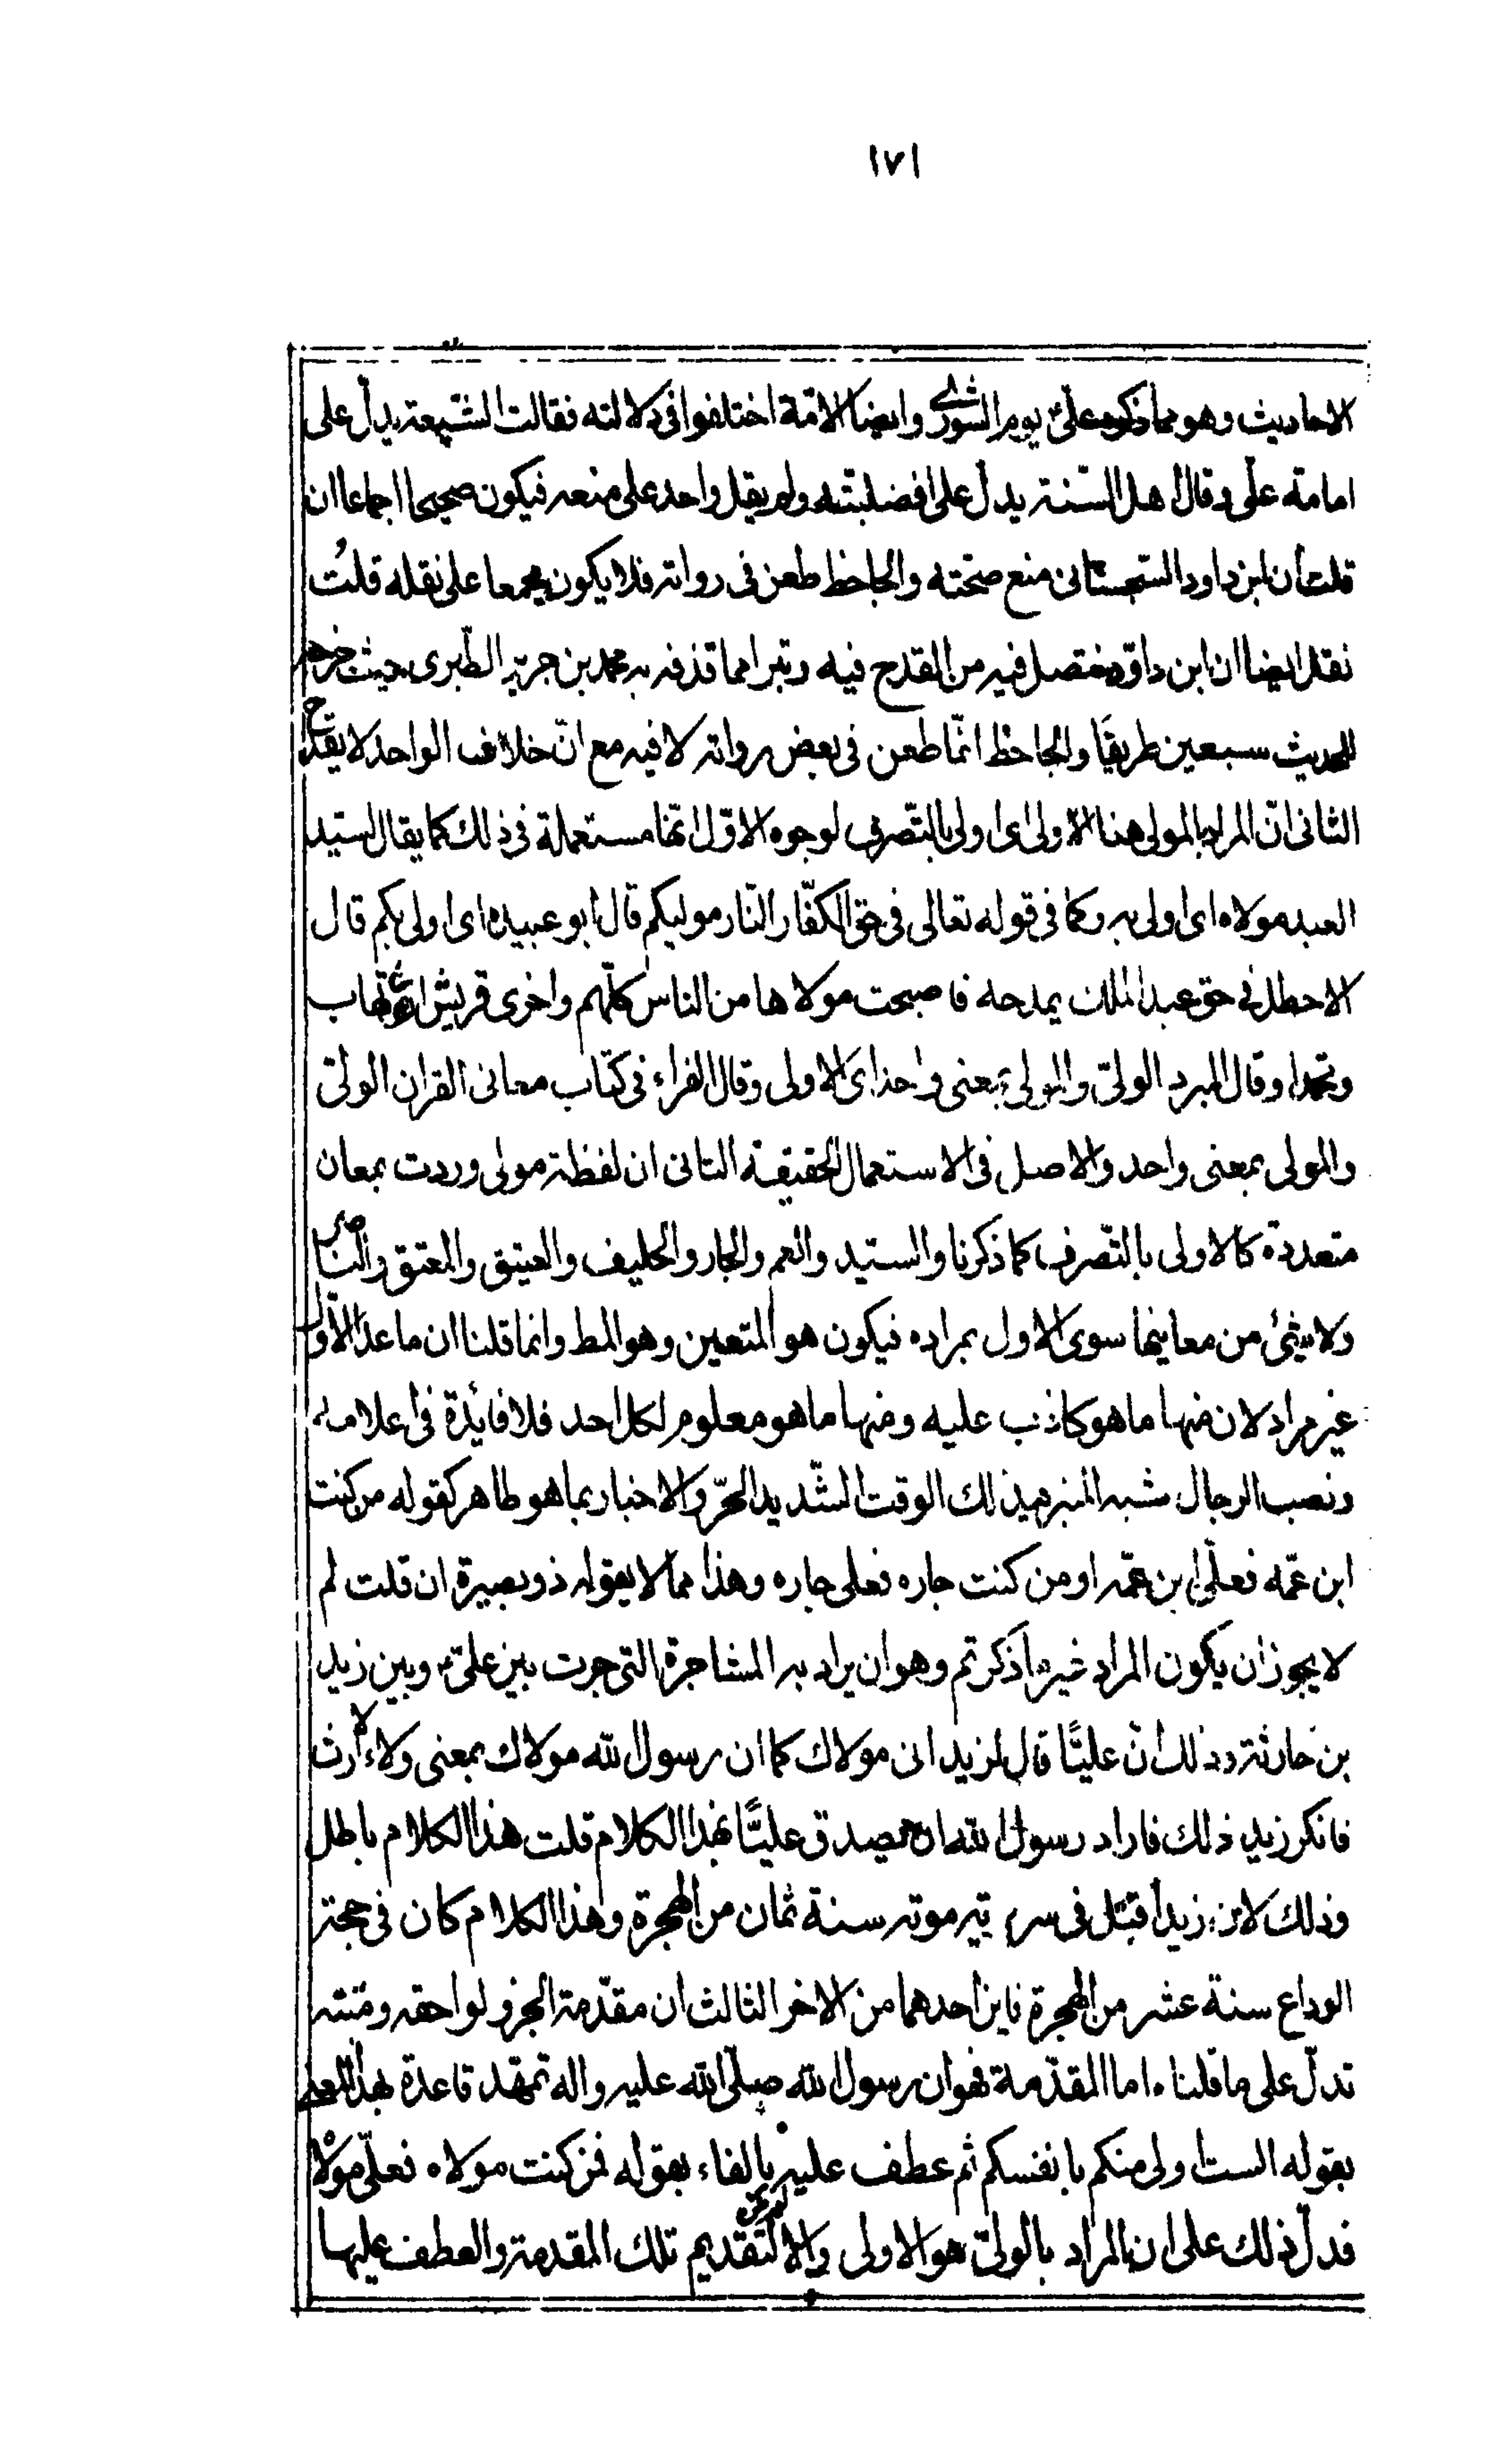 ١٧١
الاحاديث وهو مما ذكره علیّ يوم الشورى وايضا الامّة اختلفوا فى دلالته فقالت الشّيعة يدلّ على
امامة علىّ وقال اهل السّنة يدلّ على افضليّته ولم يقل واحد على منعه فيكون صحيحا اجماعا ان
قلت ان ابن داود السّجستانى منع صحّته والجاحظ طعن فى رواته فلا يكون مجمعا على نقله قلتُ
نقل ايضا ان ابن داوّد تنصل فيه من القدح فيه وتبرا مما قذفه به محمد بن جرير الطّبرى حيث خرج
للحديث سبعين طريقًا والجاحظ انّما طعن فى بعض رواته لا فيه مع انّ خلاف الواحد لا يقدح
الثانى انّ المراد بالمولى هنا الاولى اى اولى بالتّصرف لوجوه الاوّل انّها مستعملة فى ذلك كما يقال لسيّد
العبد مولاه اى اولى به وكما فى قوله تعالى فى حق الكفّار النّار موليكم قال ابو عبيده اى اولى بكم قال
الاخطل فى حق عبد الملك يمدحه فاصبحت مولاها من الناس كلّهم واحرى قريش ان تهاب
وتحمدا وقال المبرد الولىّ والمولى بمعنى واحد اى الاولى وقال الفراء فى كتاب معانى القران الولىّ
والمولى بمعنى واحد والاصل فى الاستعمال الحقيقة الثانى ان لفظة مولى وردت بمعان
متعددة كالاولى بالتّصرف كما ذكرنا والسّيد والعم والجار والحليف والعتيق والمعتق والنّاصر
ولا شئ من معانيها سوى الاول بمراده فيكون هو المتعين وهو المط وانما قلنا ان ما عدا الاوّل
غير مراد لان منها ما هو كاذب عليه ومنها ما هو معلوم لكل احد فلا فائدة فى اعلامه
ونصب الرحال شبه المنبر فى ذلك الوقت الشّديد الحرّ والاخبار بما هو ظاهر كقوله من كنت
ابن عمّه فعلىّ ابن عمّه او من كنت جاره فعلى جاره وهذا مما لا يقوله ذو بصيرة ان قلت لم
لا يجوز ان يكون المراد غير ما ذكرتم وهو ان يراد به المشاجرة التى جرت بين علىّ وبين زيد
بن حارثة وذلك انّ عليًّا قال لزيد انى مولاك كما ان رسول الله مولاك بمعنى ولاء الارث
فانكر زيد ذلك فاراد رسول الله ان يصدق عليًّا بهذا الكلام قلت هذا الكلام باطل
وذلك لان زيدا قتل فى سرية موته سنة ثمان من الهجرة وهذا الكلام كان فى حجة
الوداع سنة عشر من الهجرة فاين احدهما من الاخر الثالث ان مقدّمة الخبر ولواحقه ومتنه
تدلّ على ما قلناه اما المقدّمة فهو ان رسول الله صلّى الله عليه واله تمهّد قاعدة بهذا المعنى
بقوله الست اولى منكم بانفسكم ثم عطف عليه بالفاء بقوله فمن كنت مولاه فعلىّ مولاه
فدلّ ذلك على ان المراد بالولىّ هو الاولى والا لتقديم تلك المقدمة والعطف عليها